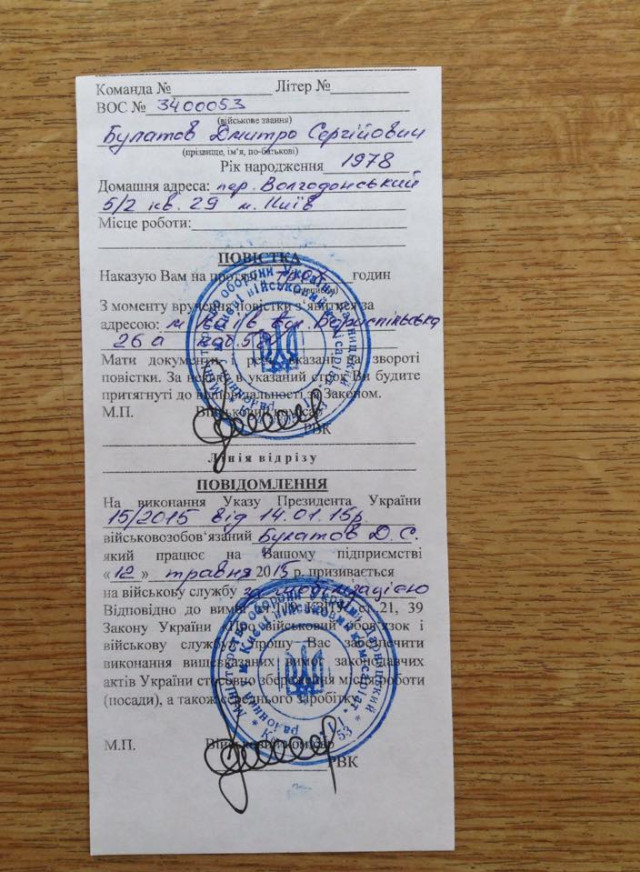 Команда № Літер №
ВОС № 3400053
(військове звання)
Булатов Дмитро Сергійович
(прізвище, ім'я, по-батькові)
Рік народження 1978
Домашня адреса: пер. Волгодонський
5/2 кв. 29 м. Київ
Місце роботи:
ПОВІСТКА
Наказую Вам на протязі трьох годин
З моменту вручення повістки з'явитися за
адресою: м Київ вул. Бориспільська
26 а
Мати документи і речі вказані на звороті
повістки. За неявку в указаний строк Ви будите
притягнуті до відповідальності за Законом.
М.П. Військовий комісар
РВК
Лінія відрізу
ПОВІДОМЛЕННЯ
На виконання Указу Президента України
15/2015 від 14.01.15р
військовозобов'язаний Булатов Д.С.
який працює на Вашому підприємстві
«12» травня 2015 р. призивається
на військову службу за мобілізацією
Відповідно до вимог ст. 119 КЗПП, ст 21, 39
Закону України "Про військовий обов'язок і
військову службу" прошу Вас забезпечити
виконання вищевказаних вимог законодавчих
актів України стосовно збереження місця роботи
(посади), а також середнього заробітку.
М.П. Військовий комісар
РВК